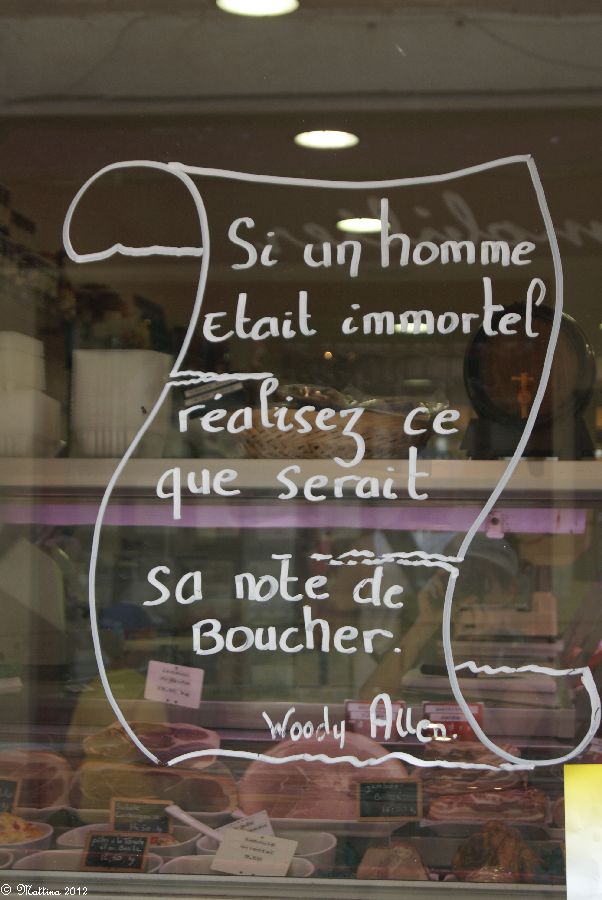 Si un homme
Etait immortel
réalisez ce
que serait
sa note de
Boucher.
Woody Allen.
© Mattina 2012